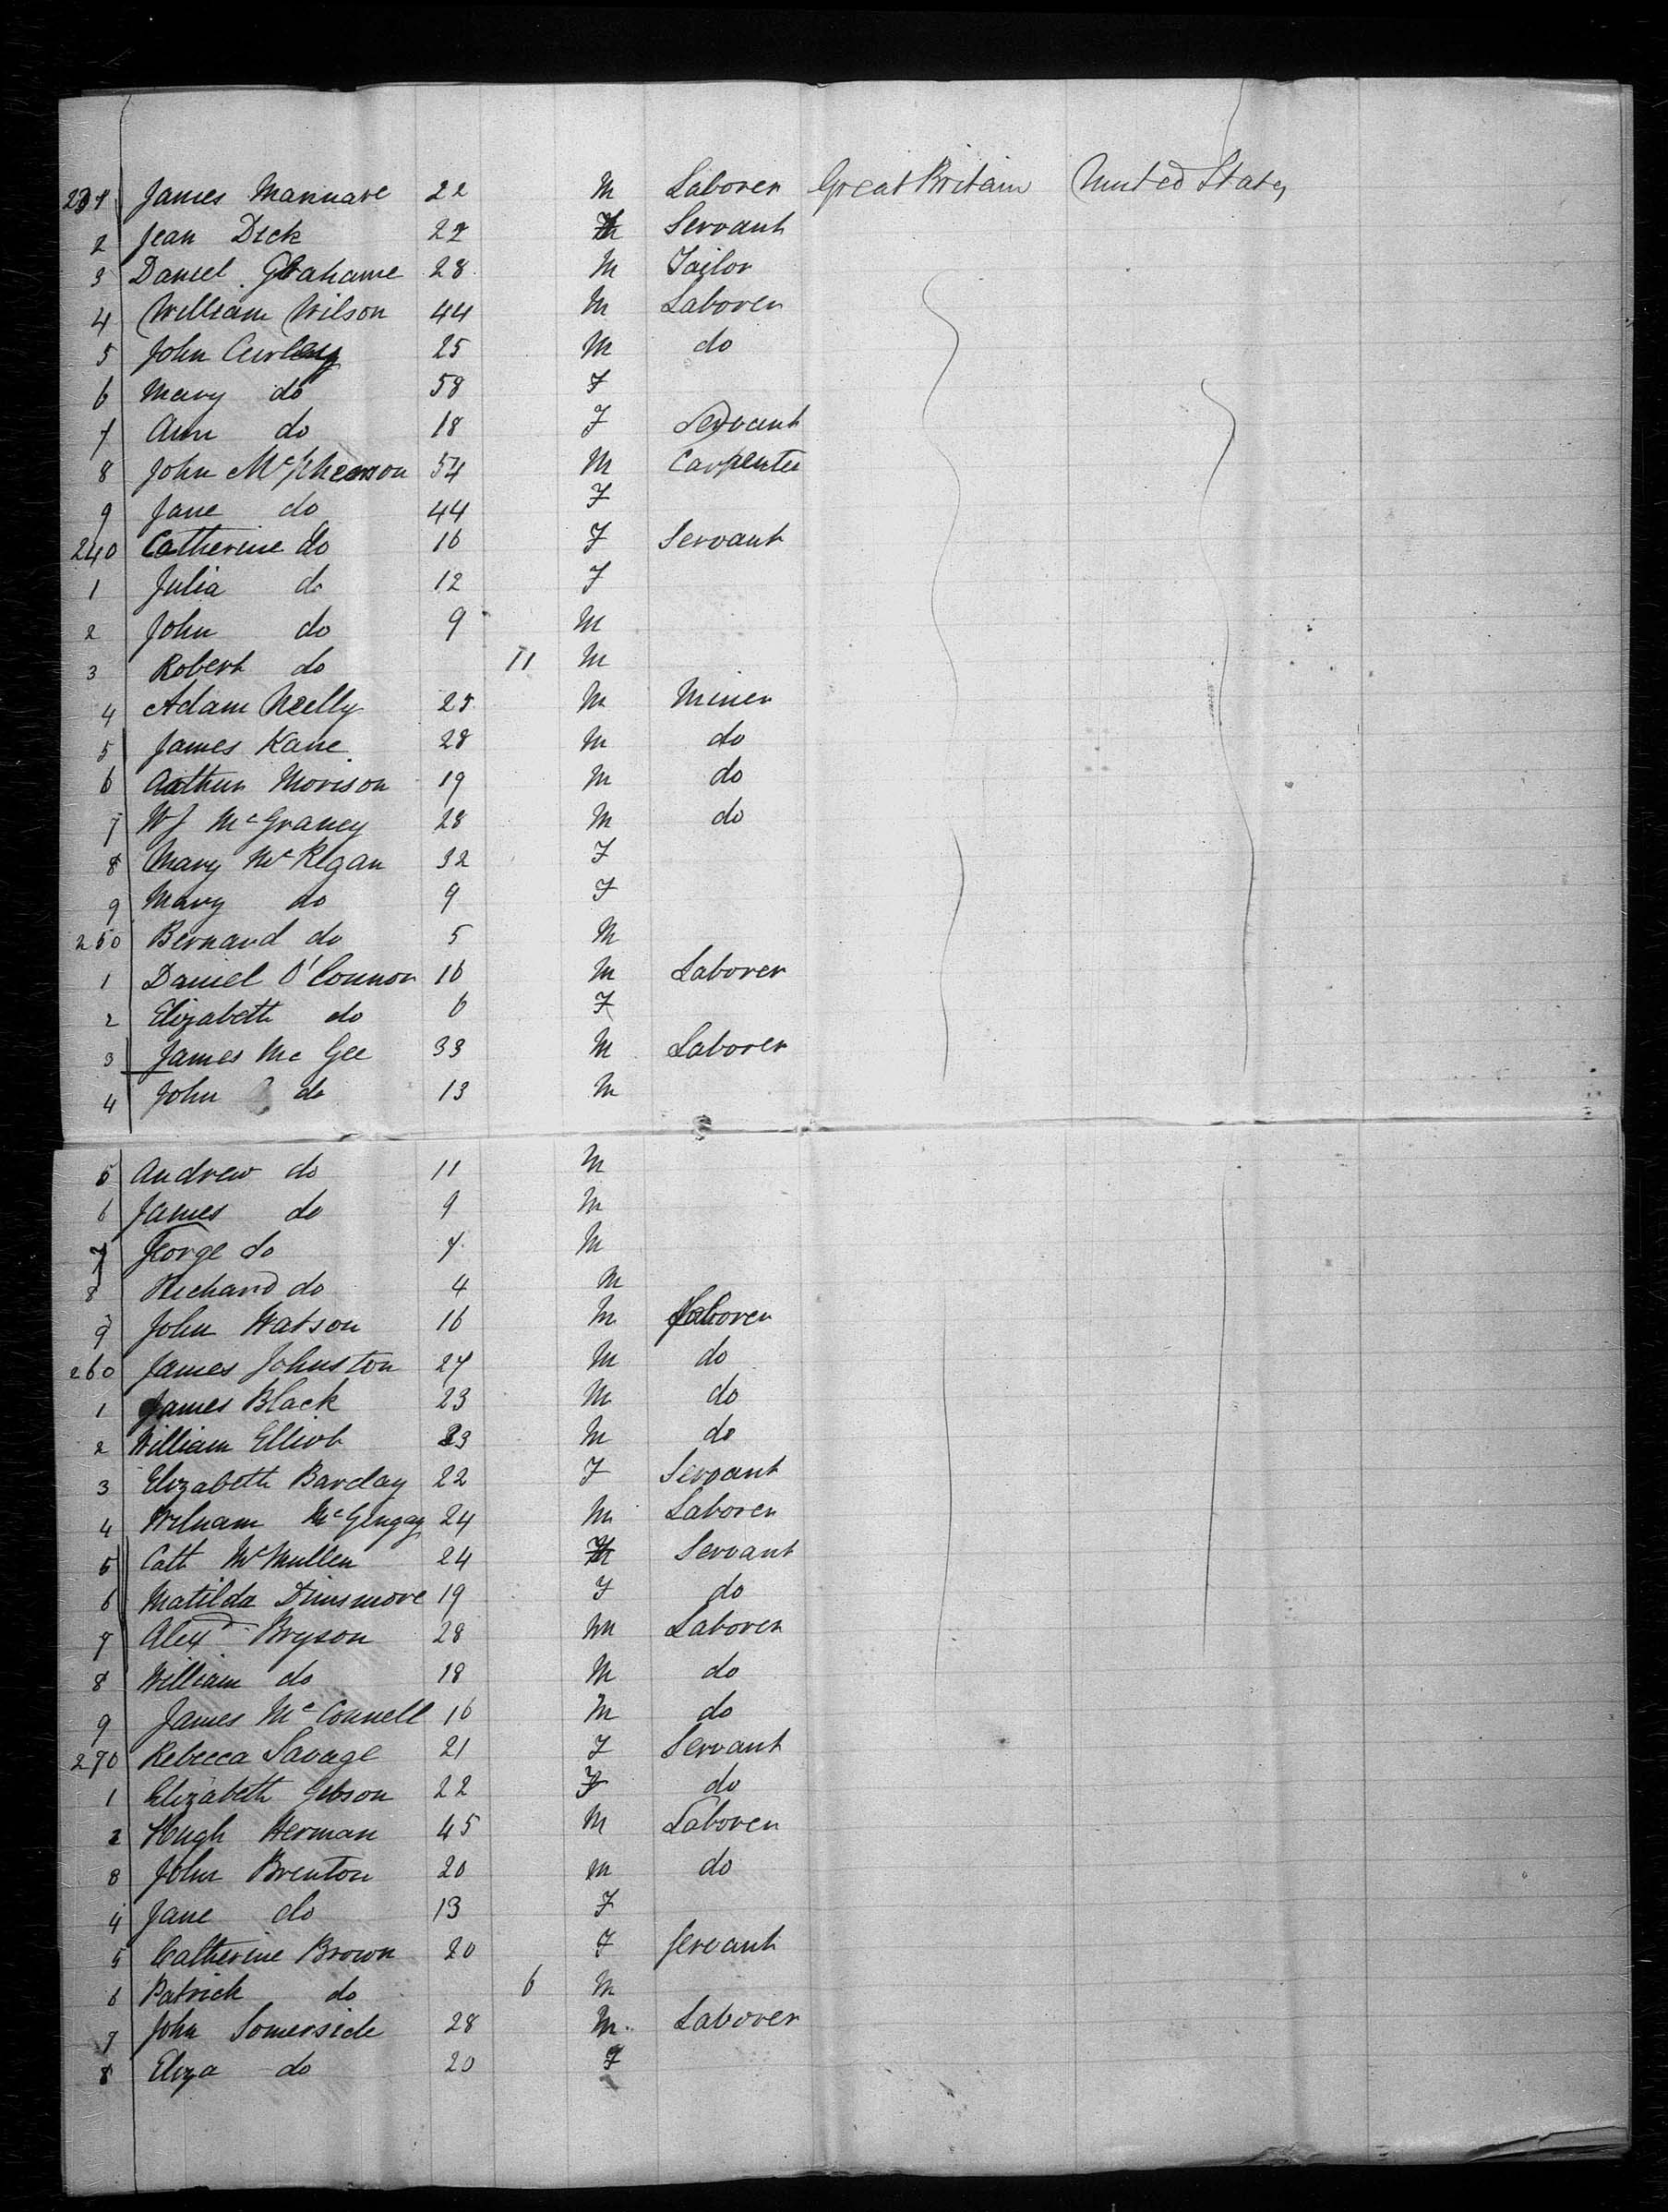 231 James Mannare 22 M Laborer Great Britain United States
2 Jean Dick 22 Servant
3 Daniel Grahame 28 M Tailor
4 William Wilson 44 M Laborer
5 John Curley 25 M do
6 Mary do 58 F
7 Ann do 18 F Servant
8 John McPherson 54 M Carpenter
9 Jane do 44 F
240 Catherine do 16 F Servant
1 Julia do 12 F
2 John do 9 M
3 Robert do 11 M
4 Adam Neelly 25 M Miner
5 James Kane 28 M do
6 Arthur Morison 19 M do
7 WJ McGraney 28 M do
8 Mary McRegan 32 F
9 Mary do 9 F
250 Bernard do 5 M
1 Daniel O'Connor 16 M Laborer
2 Elizabeth do 6 F
3 James Mc Gee 33 M Laborer
4 John do 13 M
5 Andrew do 11 M
6 James do 9 M
7 George do 7 M
8 Richard do 4 M
9 John Watson 16 M Laborer
260 James Johnston 27 M do
1 James Black 23 M do
2 William Elliot 23 M do
3 Elizabeth Barclay 22 F Servant
4 William 24 M Laborer
5 Cath McMullen 24 Servant
6 Matilda Dinsmore 19 F do
7 Alexd Bryson 28 M Laborer
8 William do 18 M do
9 James McConnell 16 M do
270 Rebecca Savage 21 F Servant
1 Elizabeth Gibson 22 F do
2 Hugh Herman 45 M Laborer
3 John Brenton 20 M do
4 Jane do 13 F
5 Catherine Brown 20 F Servant
6 Patrick do 6 M
7 John Somerside 28 M Laborer
8 Eliza do 20 F